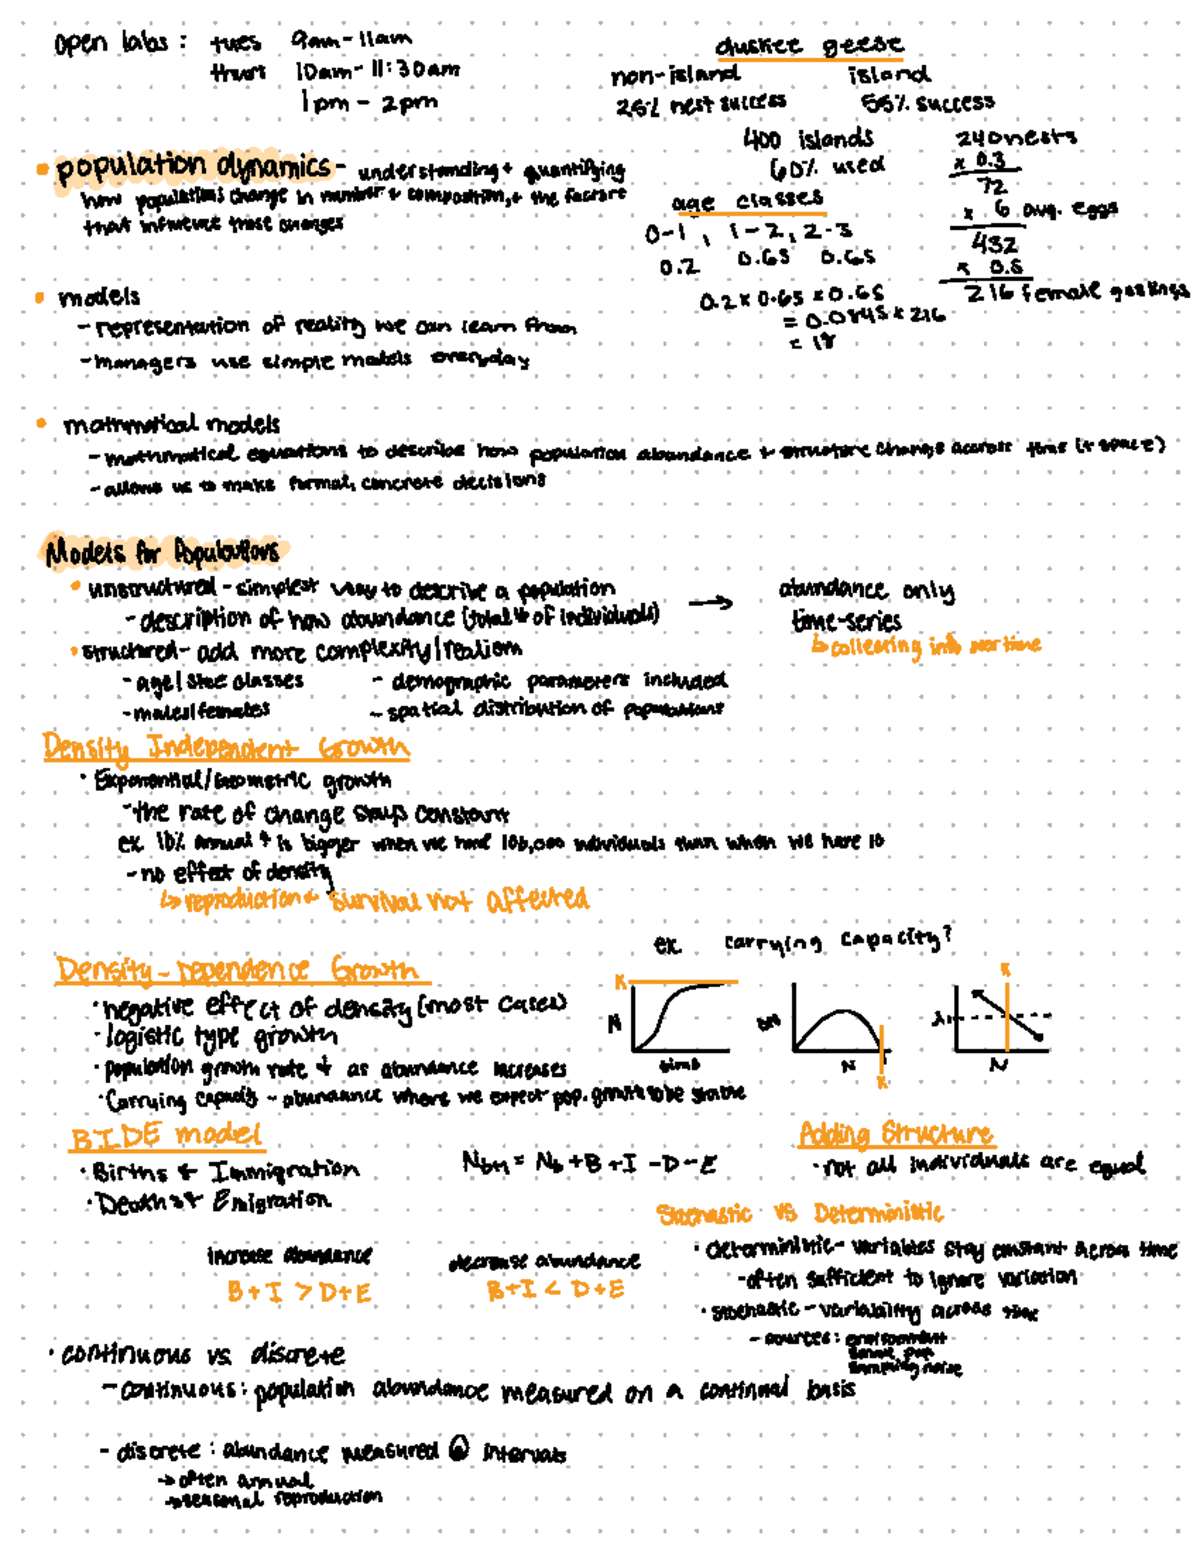 open labs: tues 9am-11am
thurs 10am-11:30am
1pm - 2pm
duskee geese
non-island island
25% nest success 55% success
400 islands
60% used
240 nests
x 0.3
72
x 6 avg. eggs
432
x 0.5
216 female goslings
age classes
0-1, 1-2, 2-3
0.2 0.65 0.65
0.2 x 0.65 x 0.65
= 0.0845 x 216
= 18
• population dynamics - understanding + quantifying
how populations change in number + composition, + the factors
that influence those changes
• models
- representation of reality we can learn from
- managers use simple models everyday
• mathmatical models
- mathmatical equations to describe how population abundance + structure change across time (+ space)
- allows us to make formal, concrete decisions
Models for Populations
• unstructured - simplest way to describe a population
- description of how abundance (total # of individuals) →
abundance only
time-series
↳ collecting info over time
• structured - add more complexity/realism
- age/size classes - demographic parameters included
- males/females - spatial distribution of populations
Density Independent Growth
• Exponential/Geometric growth
- the rate of change stays constant
ex 10% annual ↑ is bigger when we have 100,000 individuals than when we have 10
- no effect of density
↳ reproduction + survival not affected
ex. carrying capacity?
Density-Dependence Growth
• negative effect of density (most cases)
• logistic type growth
• population growth rate ↓ as abundance increases
• Carrying capacity - abundance where we expect pop. growth to be stable
K
N
time
N
K
K
N
BIDE model
• Births & Immigration
• Deaths & Emigration
Nt+1 = Nt + B + I - D - E
increase abundance
B + I > D + E
decrease abundance
B + I < D + E
Adding Structure
• not all individuals are equal
Stochastic vs Deterministic
• deterministic - variables stay constant across time
- often sufficient to ignore variation
• stochastic - variability across time
- sources: environment
sampling noise
• continuous vs. discrete
- continuous: population abundance measured on a continual basis
- discrete: abundance measured @ intervals
→ often annual
→ seasonal reproduction